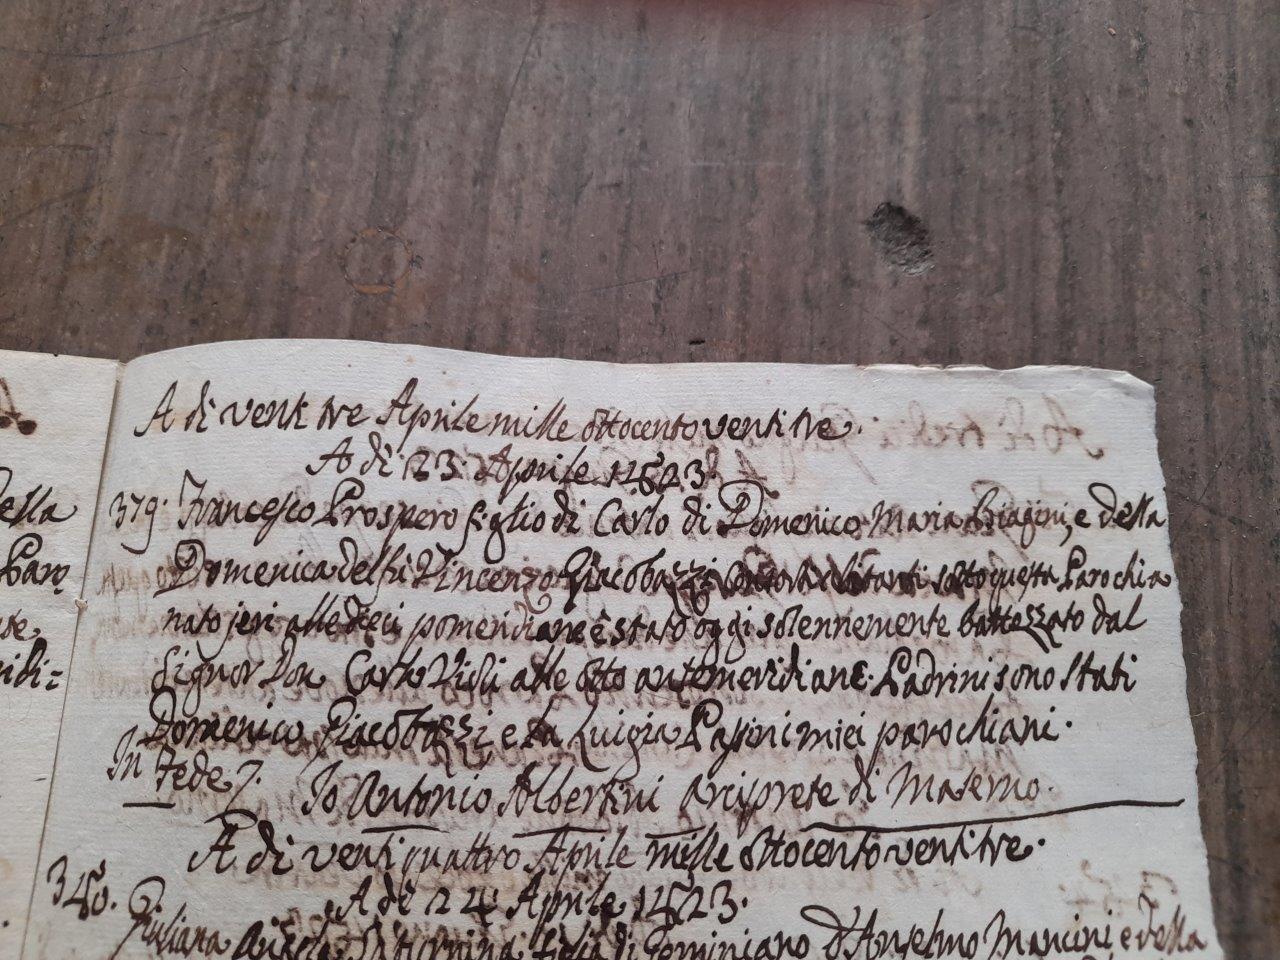 ella
Paro
te
A di venti tre Aprile mille ottocento venti tre.
A di 23. Aprile 1823.
379. Francesco Prospero figlio di Carlo di Domenico Maria Biagini, e della
Domenica del fù Vincenzo Giacobazzi abitanti sotto questa Parochia
nato jeri alle dieci pomeridiane è stato oggi solennemente battezzato dal
Signor Don Carlo Violi alle otto antemeridiane. Padrini sono stati
Domenico Giacobazzi e la Luigia Passini miei parochiani.
In Fede
Io Antonio Albertini Arciprete di Maserno.
A di venti quattro Aprile mille ottocento venti tre.
380. A di 24. Aprile 1823.
Giuliana figlia di Geminiano d'Anselmo Mancini e della